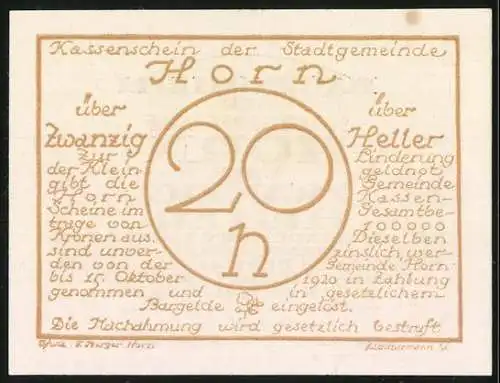 Kassenschein der Stadtgemeinde
Horn
über über
Zwanzig 20 Heller
Zur Linderung
der Klein geldnot
gibt die Gemeinde
Horn Kassen-
Scheine im Gesamtbe-
trage von 100000
Kronen aus. Dieselben
sind unver- h zinslich, wer-
den von der Gemeinde Horn
bis 15. Oktober 1920 in Zahlung
genommen und in gesetzlichem
Bargelde eingelöst.
Die Nachahmung wird gesetzlich bestraft
Berger Horn